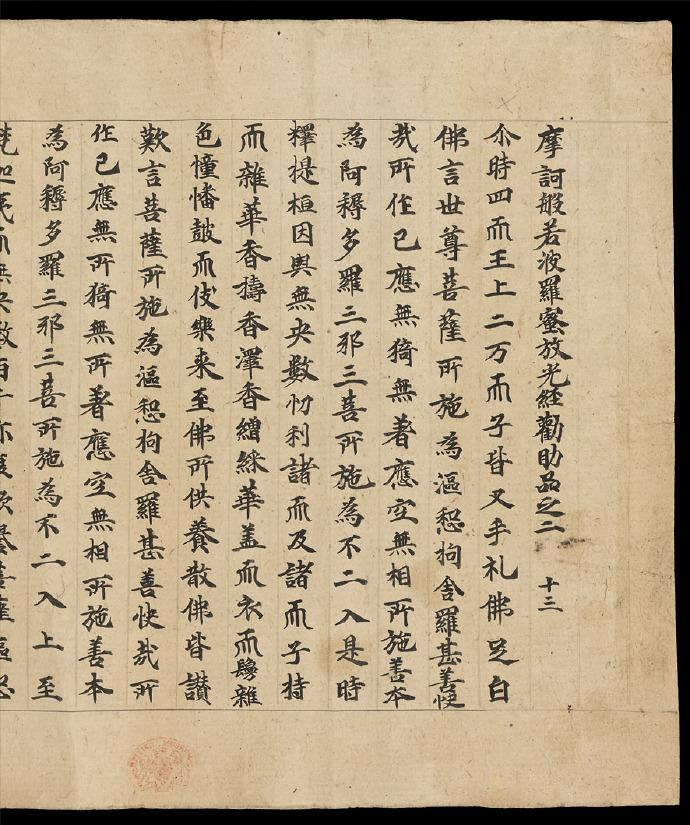 摩訶般若波羅蜜放光經勸助品之二　十三
尒時四而王上二万而子皆叉手礼佛足白
佛言世尊菩薩所施為漚惒拘舍羅甚善快
哉所作已應無猗無著應空無相所施善本
為阿耨多羅三耶三菩所施為不二入是時
釋提桓因與無央數忉利諸而及諸而子持
而雜華香擣香澤香繒綵華蓋而衣而雜
色幢幡鼓而伎樂来至佛所供養散佛皆讃
歎言菩薩所施為漚惒拘舍羅甚善快哉所
作已應無所猗無所著應空無相所施善本
為阿耨多羅三耶三菩所施為不二入上至